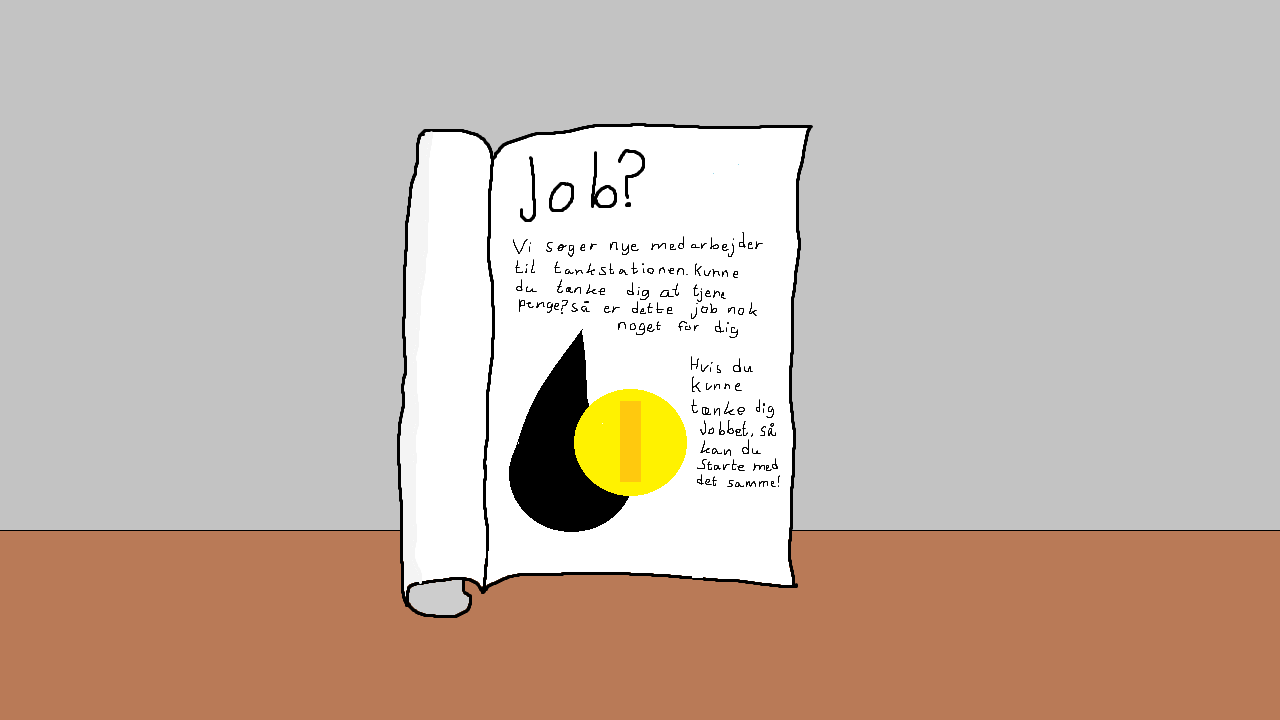 Job?
Vi søger nye medarbejder
til tankstationen. Kunne
du tænke dig at tjene
penge? så er dette job nok
noget for dig
Hvis du
kunne
tænke dig
Jobbet, så
kan du
Starte med
det samme!